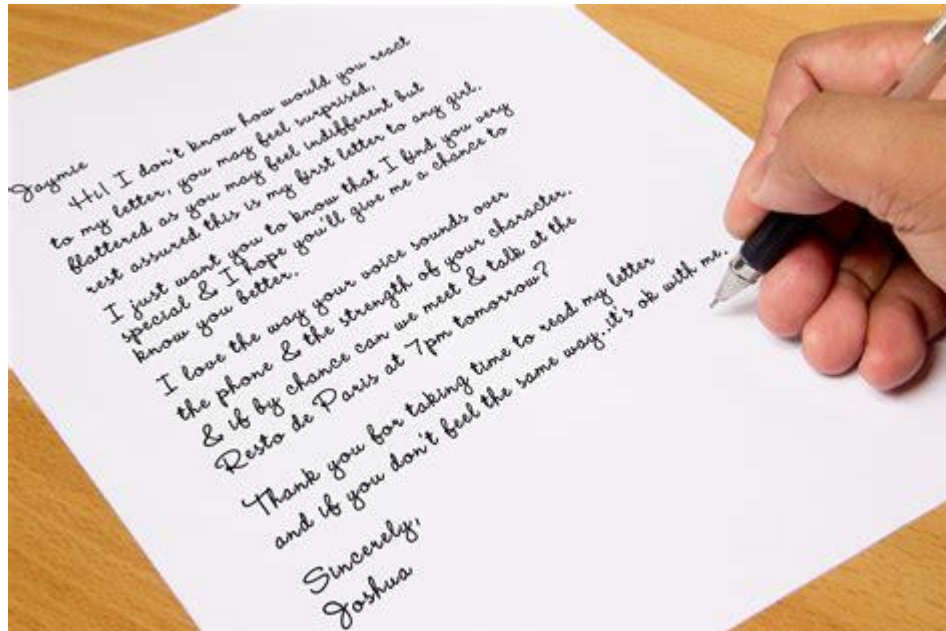 Jaymie
Hi! I don't know how would you react
to my letter, you may feel surprised,
flattered as you may feel indifferent but
rest assured this is my first letter to any girl.
I just want you to know that I find you very
special & I hope you'll give me a chance to
know you better.
I love the way your voice sounds over
the phone & the strength of your character.
& if by chance can we meet & talk at the
Resto de Paris at 7pm tomorrow?
Thank you for taking time to read my letter
and if you don't feel the same way,.it's ok with me.
Sincerely,
Joshua